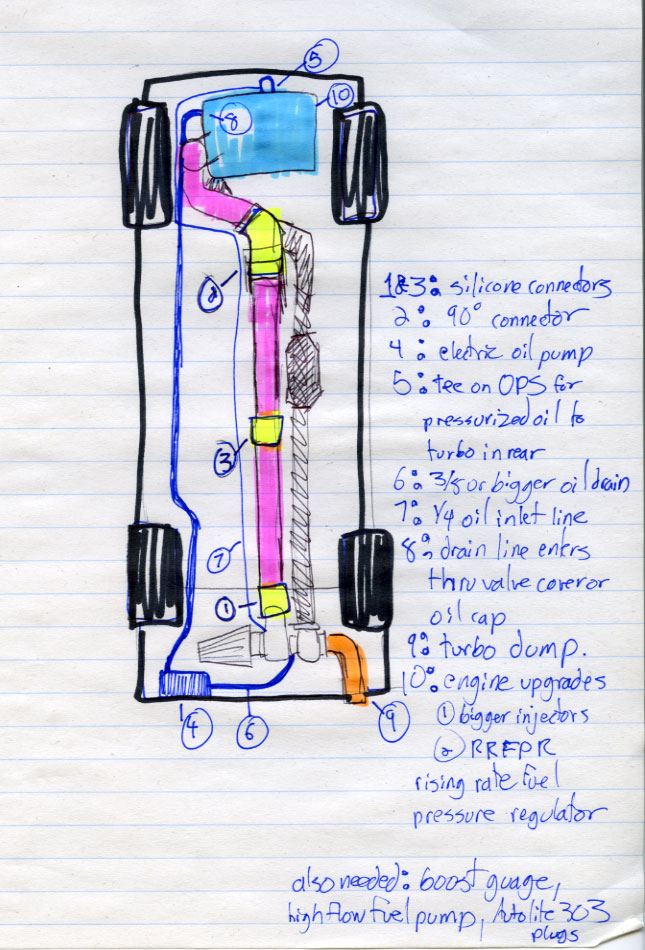 5
10
8
2
3
7
1
4
6
9
1&3: silicone connectors
2: 90° connector
4: electric oil pump
5: tee on OPS for
pressurized oil to
turbo in rear
6: 3/8 or bigger oil drain
7: 1/4 oil inlet line
8: drain line enters
thru valve cover or
oil cap
9: turbo dump.
10: engine upgrades
1 bigger injectors
2 RRFPR
rising rate fuel
pressure regulator
also needed: boost guage,
high flow fuel pump, Autolite 303
plugs